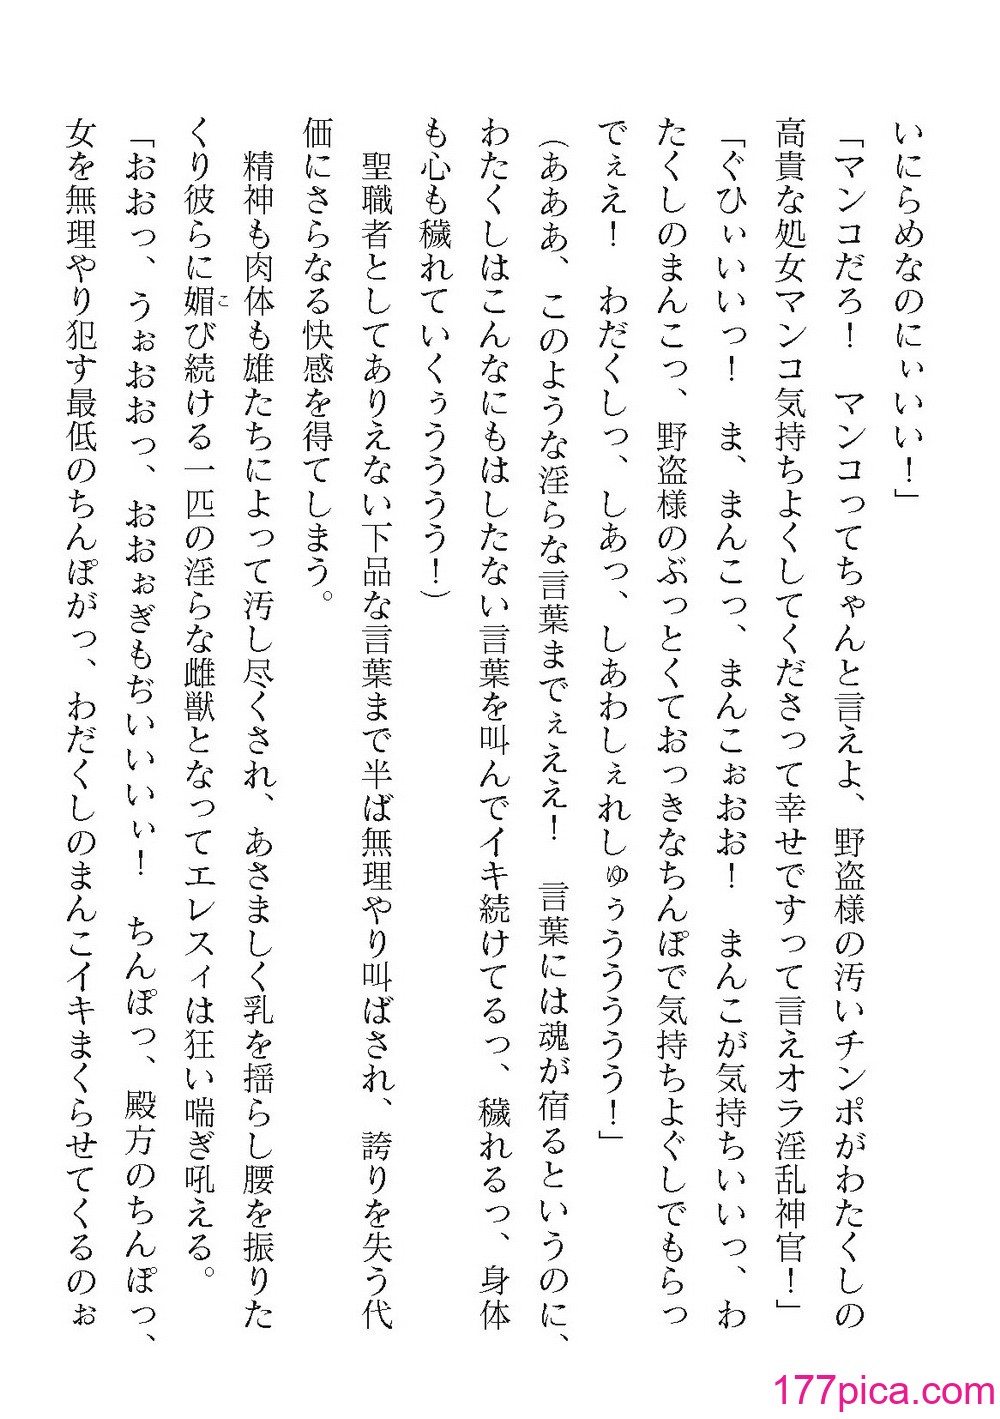 いにらめなのにぃいい！」
「マンコだろ！　マンコってちゃんと言えよ、野盗様の汚いチンポがわたくしの
高貴な処女マンコ気持ちよくしてくださって幸せですって言えオラ淫乱神官！」
「ぐひぃいいっ！　ま、まんこっ、まんこぉおお！　まんこが気持ちいいっ、わ
たくしのまんこっ、野盗様のぶっとくておっきなちんぽで気持ちよぐしでもらっ
でぇえ！　わだくしっ、しあっ、しあわしぇれしゅぅうううう！」
（あああ、このような淫らな言葉までぇええ！　言葉には魂が宿るというのに、
わたくしはこんなにもはしたない言葉を叫んでイキ続けてるっ、穢れるっ、身体
も心も穢れていくぅうううう！）
　聖職者としてありえない下品な言葉まで半ば無理やり叫ばされ、誇りを失う代
価にさらなる快感を得てしまう。
　精神も肉体も雄たちによって汚し尽くされ、あさましく乳を揺らし腰を振りた
くり彼らに媚こび続ける一匹の淫らな雌獣となってエレスィは狂い喘ぎ吼える。
「おおっ、うぉおおっ、おおぉぎもぢいいいぃ！　ちんぽっ、殿方のちんぽっ、
女を無理やり犯す最低のちんぽがっ、わだくしのまんこイキまくらせてくるのぉ
177pica.com